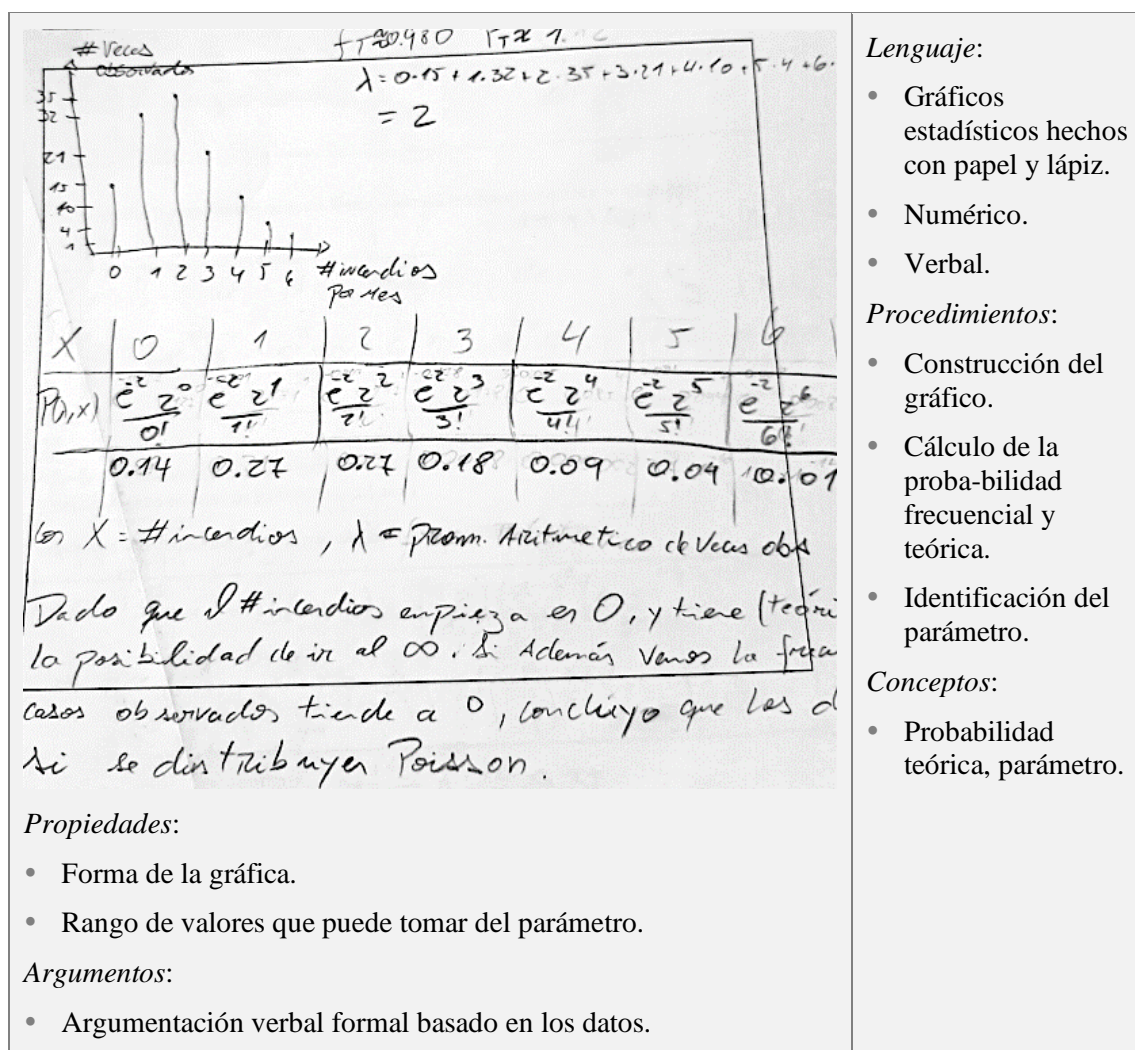 # Veces
observados
fT≈0.980 rT≈ 1.
λ = 0·15 + 1·32 + 2·35 + 3·21 + 4·10 + 5·4 + 6·
= 2
35
32
21
15
10
4
1
0 1 2 3 4 5 6 # incendios
por mes
X 0 1 2 3 4 5 6
P(λ,x) e^-2 2^0 / 0! e^-2 2^1 / 1! e^-2 2^2 / 2! e^-2 2^3 / 3! e^-2 2^4 / 4! e^-2 2^5 / 5! e^-2 2^6 / 6!
0.14 0.27 0.27 0.18 0.09 0.04 0.01
Con X = # incendios, λ = Prom. Aritmetico de Veces obs
Dado que el # incendios empieza en 0, y tiene (teóri
la posibilidad de ir al ∞. Si Además Vemos la frecu
casos observados tiende a 0, concluyo que los d
si se distribuyen Poisson.
Propiedades:
• Forma de la gráfica.
• Rango de valores que puede tomar del parámetro.
Argumentos:
• Argumentación verbal formal basado en los datos.
Lenguaje:
• Gráficos
estadísticos hechos
con papel y lápiz.
• Numérico.
• Verbal.
Procedimientos:
• Construcción del
gráfico.
• Cálculo de la
proba-bilidad
frecuencial y
teórica.
• Identificación del
parámetro.
Conceptos:
• Probabilidad
teórica, parámetro.